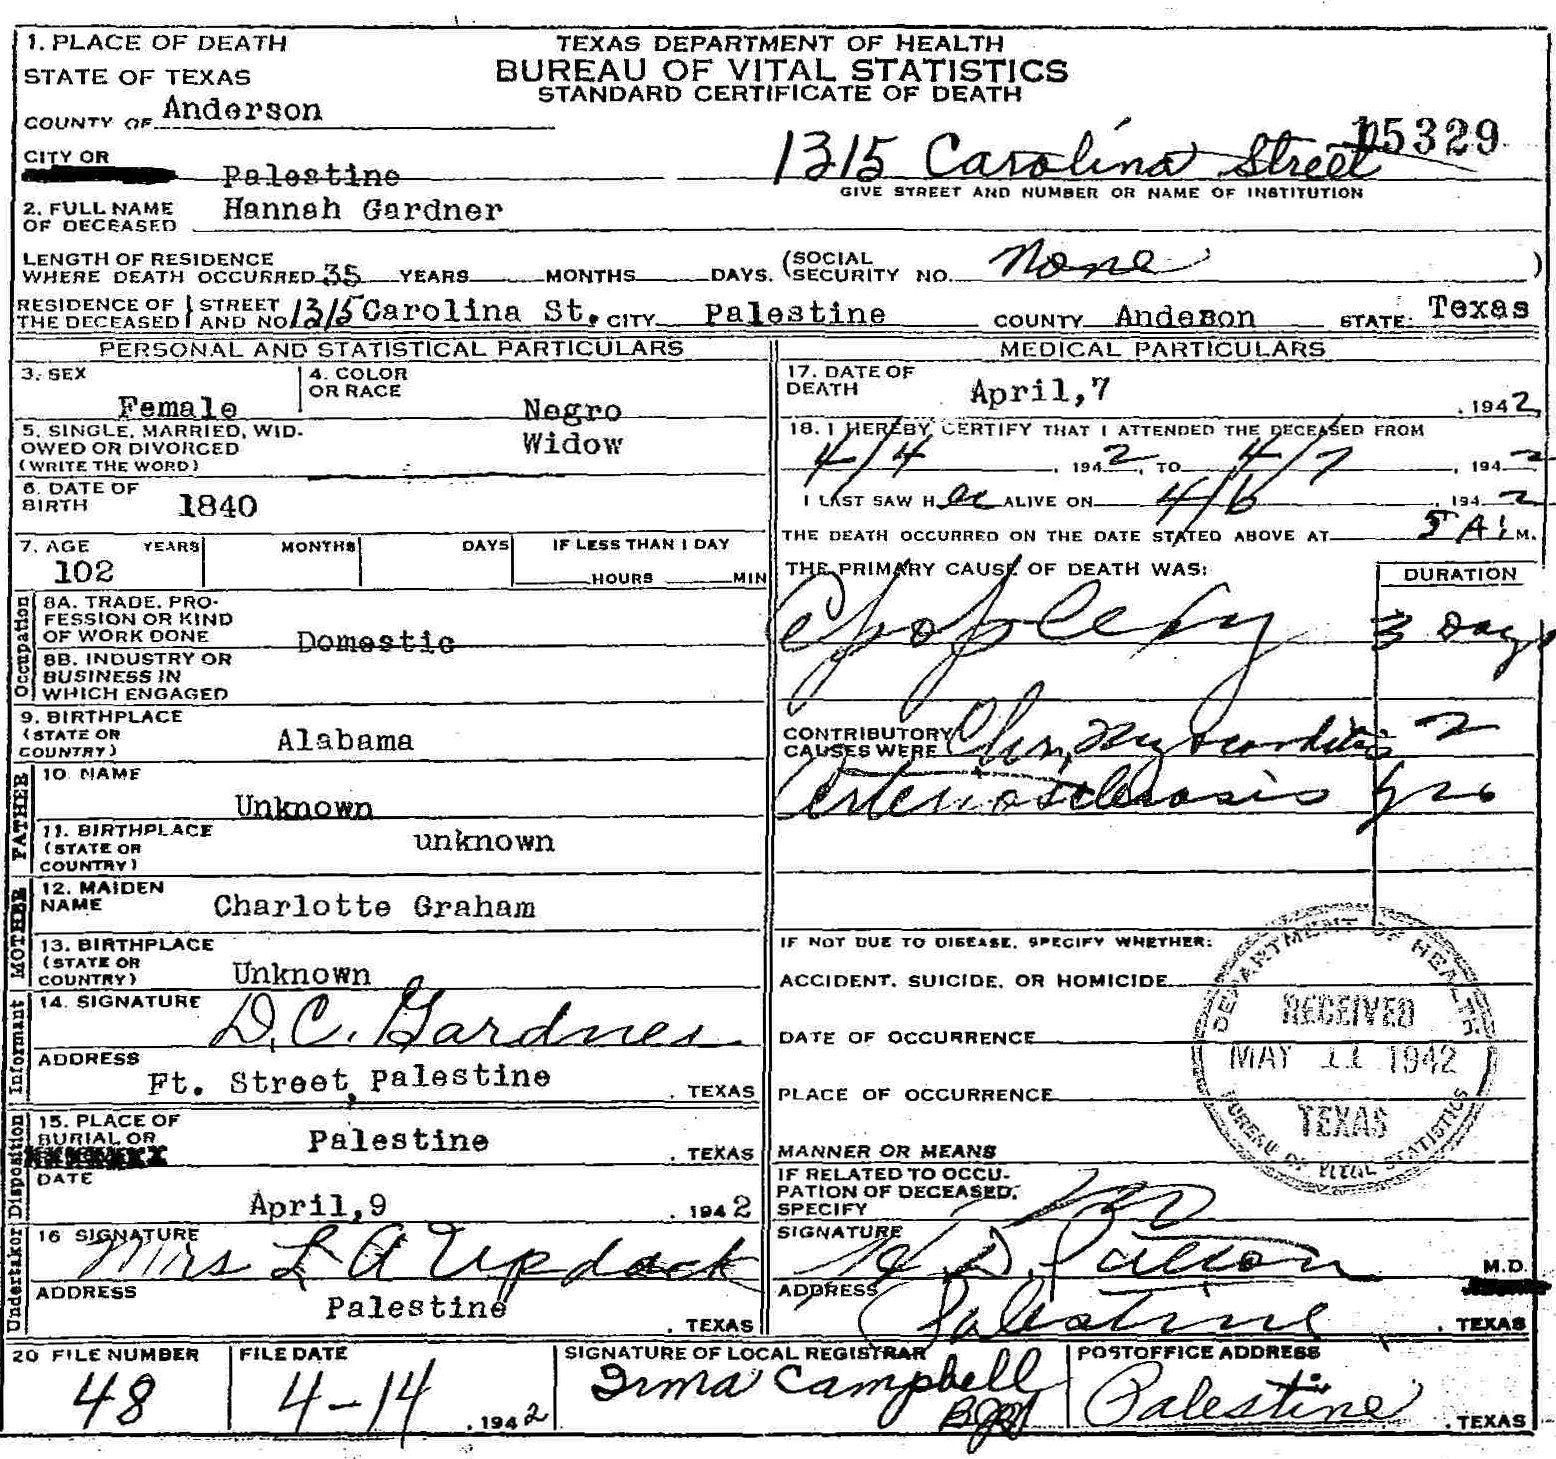 1. PLACE OF DEATH
STATE OF TEXAS
COUNTY OF Anderson
CITY OR
Palestine
TEXAS DEPARTMENT OF HEALTH
BUREAU OF VITAL STATISTICS
STANDARD CERTIFICATE OF DEATH
15329
1315 Carolina Street
GIVE STREET AND NUMBER OR NAME OF INSTITUTION
2. FULL NAME OF DECEASED Hannah Gardner
LENGTH OF RESIDENCE
WHERE DEATH OCCURRED 35 YEARS MONTHS DAYS. (SOCIAL SECURITY NO. None )
RESIDENCE OF THE DECEASED STREET AND NO. 1315 Carolina St. CITY Palestine COUNTY Andeson STATE: Texas
PERSONAL AND STATISTICAL PARTICULARS
3. SEX Female
4. COLOR OR RACE Negro
5. SINGLE, MARRIED, WID-
OWED OR DIVORCED
(WRITE THE WORD)
Widow
6. DATE OF BIRTH 1840
7. AGE YEARS MONTHS DAYS IF LESS THAN 1 DAY
102 HOURS MIN
Occupation
8A. TRADE, PRO-
FESSION OR KIND
OF WORK DONE Domestic
8B. INDUSTRY OR
BUSINESS IN
WHICH ENGAGED
9. BIRTHPLACE
(STATE OR
COUNTRY) Alabama
FATHER
10. NAME Unknown
11. BIRTHPLACE
(STATE OR
COUNTRY) unknown
MOTHER
12. MAIDEN NAME Charlotte Graham
13. BIRTHPLACE
(STATE OR
COUNTRY) Unknown
Informant
14. SIGNATURE D.C. Gardner
ADDRESS Ft. Street, Palestine . TEXAS
Disposition
15. PLACE OF
BURIAL OR
Palestine . TEXAS
DATE April,9 . 1942
Undertaker
16 SIGNATURE Mrs L A Updack
ADDRESS Palestine . TEXAS
MEDICAL PARTICULARS
17. DATE OF DEATH April,7 , 1942
18. I HEREBY CERTIFY THAT I ATTENDED THE DECEASED FROM
4/4 , 1942, TO 4/7 , 1942
I LAST SAW H er ALIVE ON 4/6 , 1942
THE DEATH OCCURRED ON THE DATE STATED ABOVE AT 5 A. M.
THE PRIMARY CAUSE OF DEATH WAS: DURATION
Apoplexy 3 Days
CONTRIBUTORY
CAUSES WERE Chr. Myocarditis 2
Arteriosclerosis yrs
IF NOT DUE TO DISEASE, SPECIFY WHETHER:
ACCIDENT, SUICIDE, OR HOMICIDE
DATE OF OCCURRENCE
PLACE OF OCCURRENCE
MANNER OR MEANS
DEPARTMENT OF HEALTH
RECEIVED
MAY 11 1942
TEXAS
BUREAU OF VITAL STATISTICS
IF RELATED TO OCCU-
PATION OF DECEASED,
SPECIFY
SIGNATURE D. Patton M.D.
ADDRESS Palestine . TEXAS
20 FILE NUMBER 48
FILE DATE 4-14 , 1942
SIGNATURE OF LOCAL REGISTRAR
Irma Campbell
POSTOFFICE ADDRESS
Palestine . TEXAS